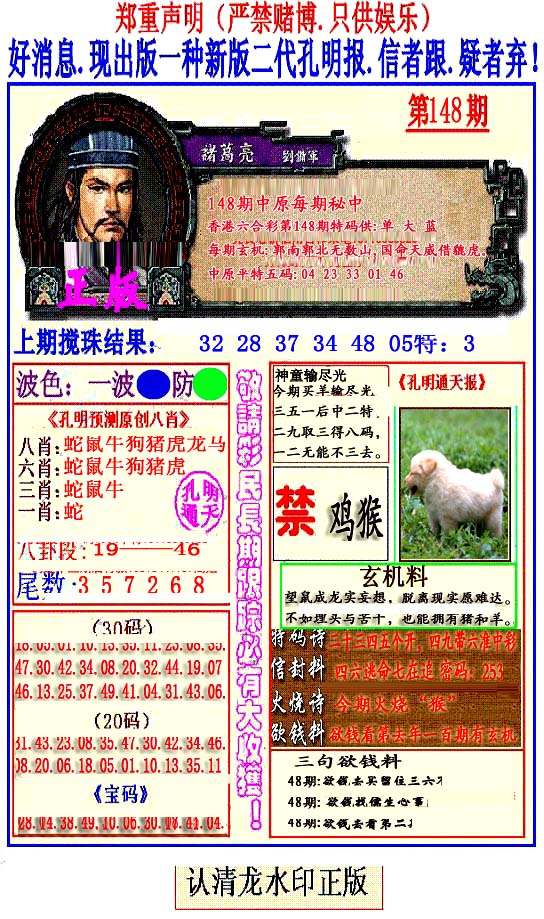 郑重声明（严禁赌博.只供娱乐）
好消息.现出版一种新版二代孔明报.信者跟.疑者弃!
第148期
諸葛亮 劉備軍
148期中原每期秘中
香港六合彩第148期特码供:单 大 蓝
每期玄机:郭南郭北无数山,国命天威借貔虎。
中原平特五码:04 23 33 01 46
正版
上期搅珠结果： 32 28 37 34 48 05特：3
波色：一波 防
《孔明预测原创八肖》
八肖:蛇鼠牛狗猪虎龙马
六肖:蛇鼠牛狗猪虎
三肖:蛇鼠牛
一肖:蛇
孔明
通天
八卦段:19——46
尾数·3 5 7 2 6 8
(30码)
18.05.01.10.13.35.11.23.08.35.
47.30.42.34.08.20.32.44.19.07
46.13.25.37.49.41.04.31.43.06.
(20码)
31.43.23.08.35.47.30.42.34.46.
08.20.06.18.05.01.10.13.35.11
《宝码》
28.04.38.49.10.06.30.18.41.04.
敬請彩民長期跟踪必有大收獲！
神童输尽光
今期买羊输尽光
三五一后中二特.
二九取三得八码,
一二无能不三去。
《孔明通天报》
禁 鸡猴
玄机料
望鼠成龙实妄想，脱离现实愿难达。
不如埋头与苦干，也能拥有猪和羊。
特码诗 二十三四五个开,四九带六准中彩
信封料 四六逃命七在追 密码：253
火烧诗 今期火烧“猴”
欲钱料 欲钱看第去年一百期有玄机
三句欲钱料
48期:欲钱去买留位三六
48期:欲钱找儒生心事
48期:欲钱去看第二
认清龙水印正版